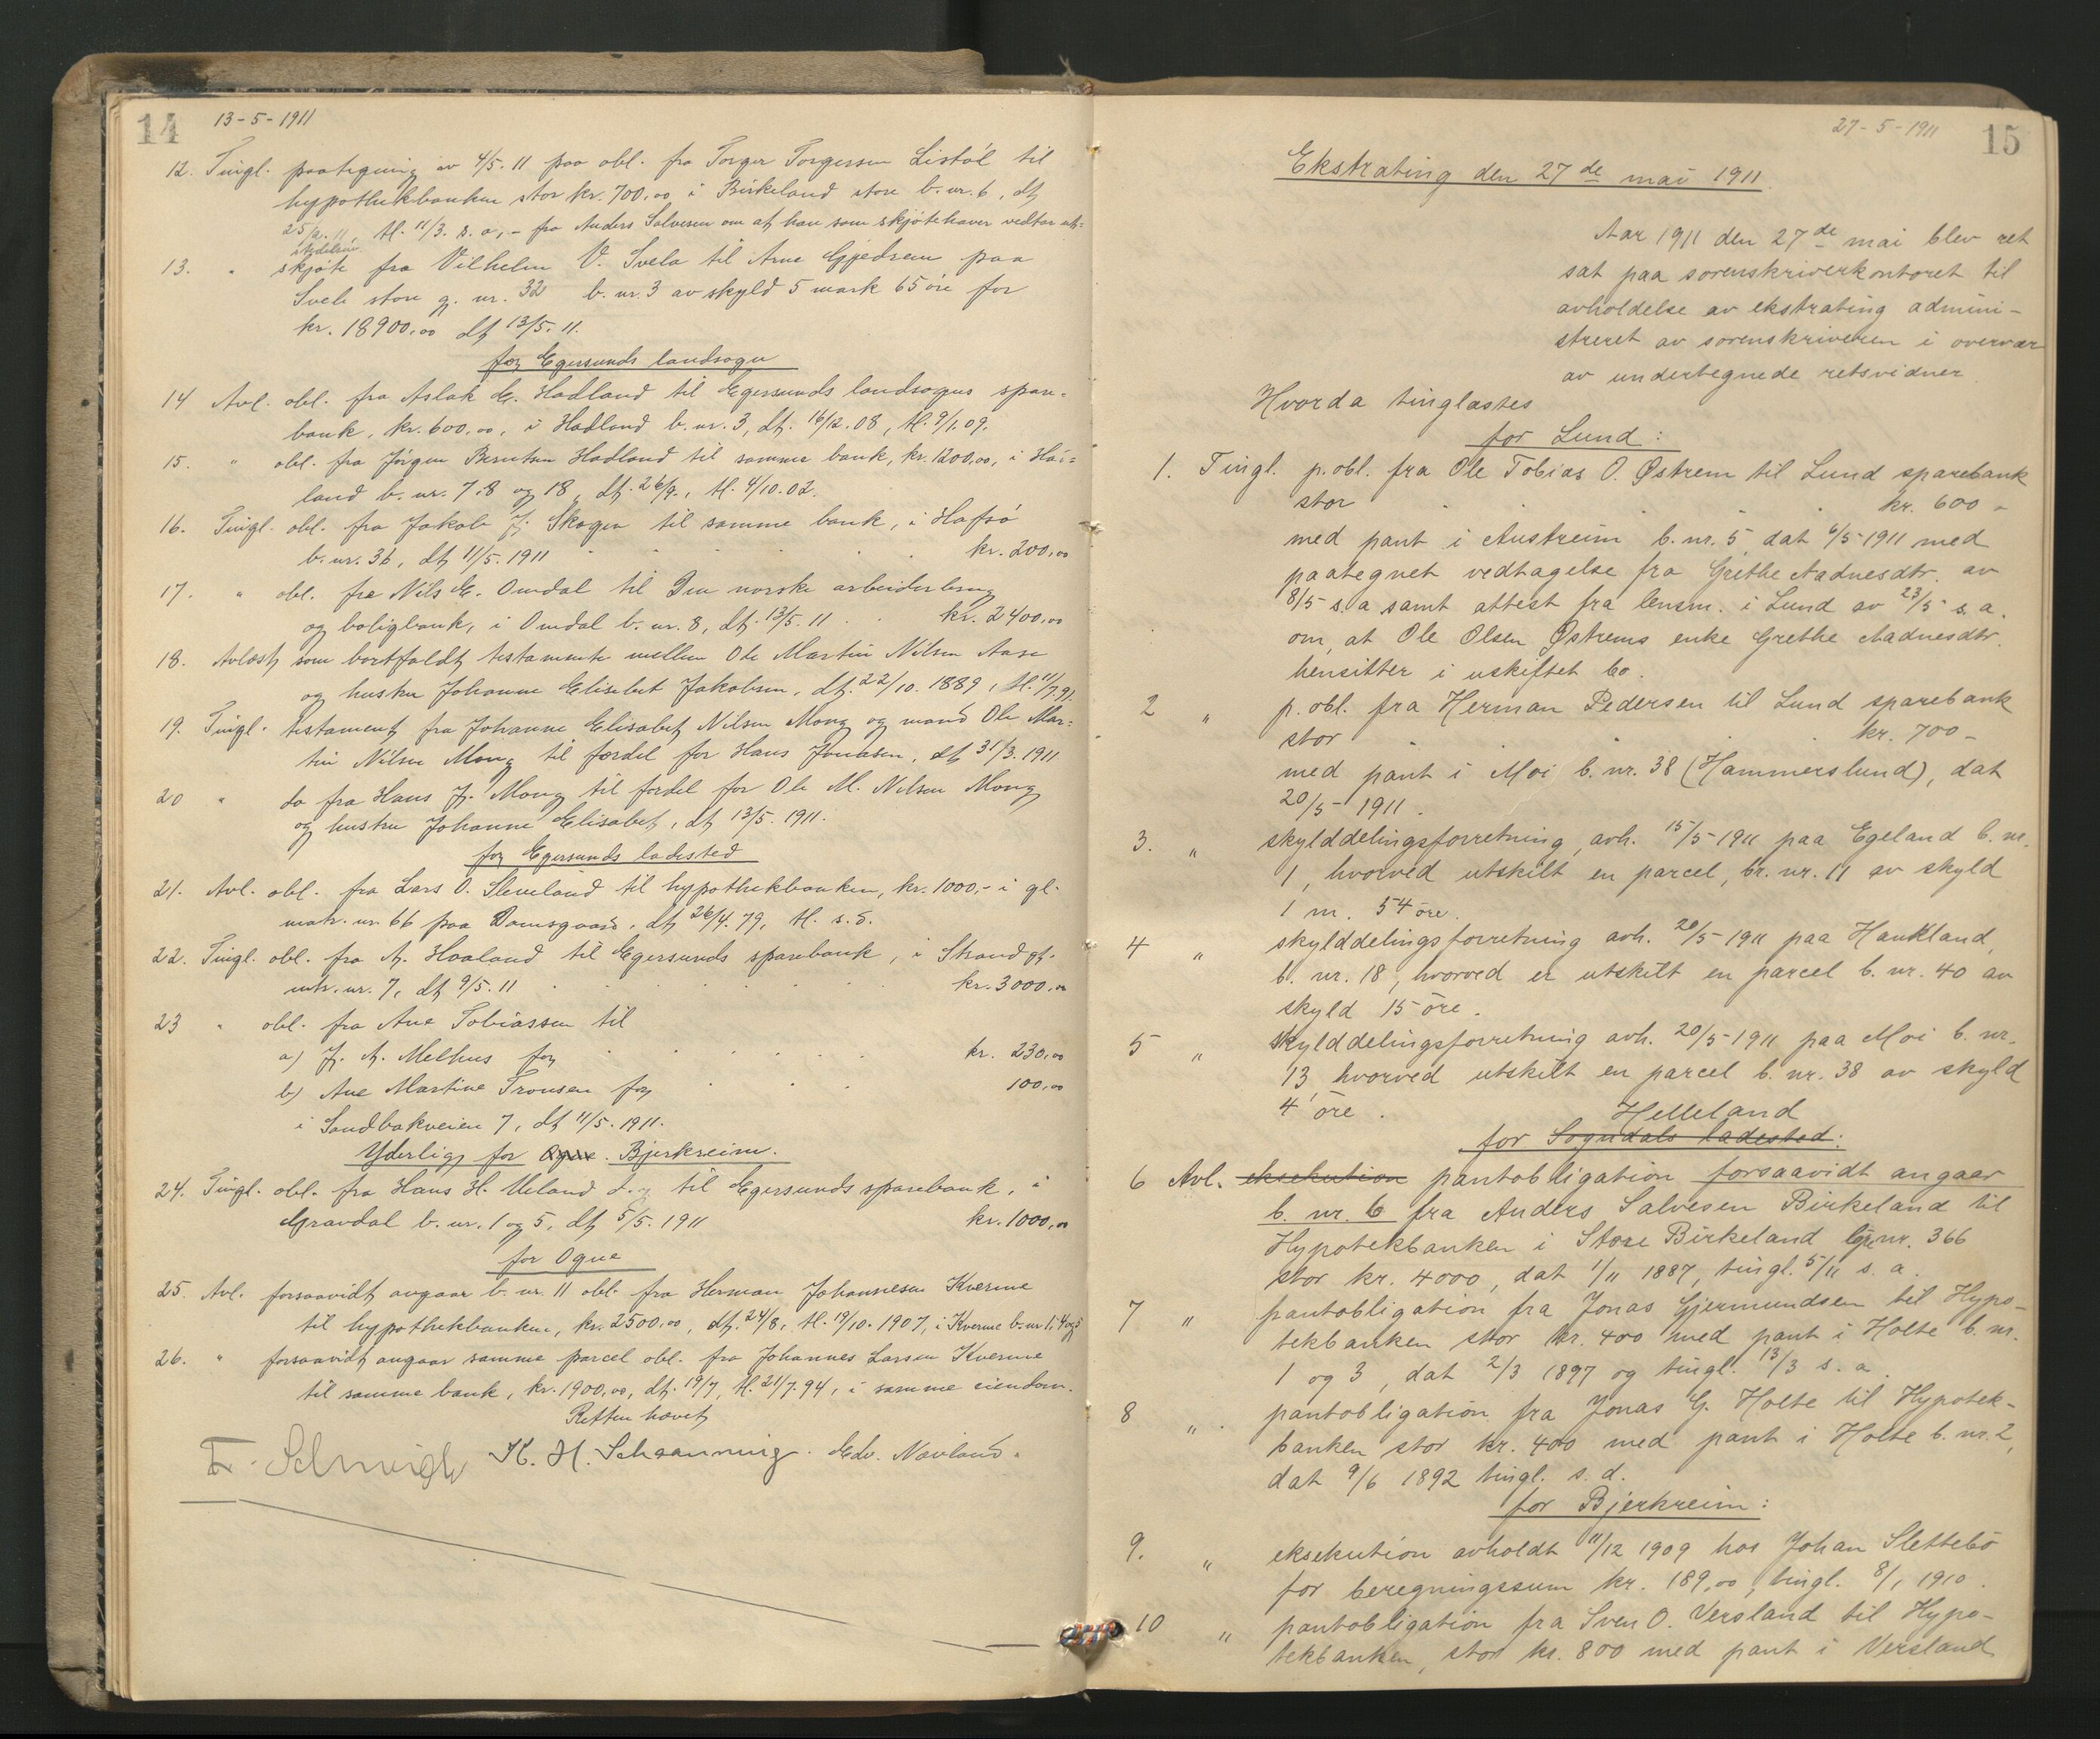 14
13-5-1911
12. Tingl. paategning av 4/5. 11 paa obl. fra Torger Torgersen Listöl til
hypothekbanken stor kr. 700,00 i Birkeland store b. nr. 6, dt
25/2. 11, tl. 11/3. s. a, - fra Anders Salvesen om at han som skjötehaver vedtar
13. " skjöte fra Vilhelm V. Svela til Arne Gjedrem paa
Svela store g. nr. 32 b. nr. 3 av skyld 5 mark 65 öre for
kr. 18900,00 dt 13/5. 11.
for Egersunds landsogn
14 Avl. obl. fra Aslak E. Hadland til Egersunds landsogns spare-
bank, kr. 600,00, i Hadland b. nr. 3, dt. 16/12. 08, tl. 9/1. 09.
15. " obl. fra Jörgen Berntsen Hadland til samme bank, kr. 1200,00, i Had-
land b. nr. 7. 8 og 18, dt. 26/9., tl. 4/10. 02.
16. Tingl. obl. fra Jakob J. Skogen til samme bank, i Hafsö
b. nr. 36, dt 11/5. 1911 kr. 200,00
17. " obl. fra Nils E. Omdal til Den norske arbeiderbrug
og boligbank, i Omdal b. nr. 8, dt. 13/5. 11 kr. 2400,00
18. Avlæst som bortfaldt testamente mellem Ole Martin Nilsen Aase
og hustru Johanne Elisabet Jakobsen, dt. 22/10. 1889, tl. 11/7. 91.
19. Tingl. testament fra Johanne Elisabet Nilsen Mong og mand Ole Mar-
tin Nilsen Mong til fordel for Hans Jonassen, dt 31/3. 1911
20 " do fra Hans J. Mong til fordel for Ole M. Nilsen Mong
og hustru Johanne Elisabet, dt 13/5. 1911.
for Egersunds ladested
21. Avl. obl. fra Lars O. Sleveland til hypothekbanken, kr. 1000,- i gl.
matr. nr. 66 paa Damsgaard, dt 26/4. 79, tl. s. d.
22. Tingl. obl. fra A. Hoaland til Egersunds sparebank, i Strandgt.
mtr. nr. 7, dt 9/5. 11 kr. 3000,00
23 " obl. fra Ane Tobiassen til
a) J. A. Melhus for kr. 230,00
b) Ane Martine Tronsen for 100,00
i Sandbakveien 7, dt 11/5. 1911.
Yderlig for Ogne. Bjerkreim.
24. Tingl. obl. fra Hans H. Ueland d. y til Egersunds sparebank, i
Gravdal b. nr. 1 og 5, dt 5/5. 1911 kr. 1000,00
for Ogne
25. Avl. forsaavidt angaar b. nr. 11 obl. fra Herman Johannesen Kverme
til hypothekbanken, kr. 2500,00, dt. 24/8, tl. 19/10. 1907, i Kverme b. nr 1, 4 og 5
26. " forsaavidt angaar samme parcel obl. fra Johannes Larsen Kverme
til samme bank, kr. 1900,00, dt. 19/7, tl. 21/7. 94, i samme eiendom.
Retten hævet
K. H. Schaanning. Edv. Navland.
27-5-1911
15
Ekstrating den 27de mai 1911.
Aar 1911 den 27de mai blev ret
sat paa sorenskriverkontoret til
avholdelse av ekstrating admini-
streret av sorenskriveren i overvær
av undertegnede retsvidner.
Hvorda tinglæstes
for Lund:
1. Tingl. p. obl. fra Ole Tobias O. Østrem til Lund sparebank
stor kr. 600 -
med pant i Austreim b. nr. 5 dat 6/5 1911 med
paategnet vedtagelse fra Grethe Aadnesdtr. av
8/5 s. a samt attest fra lensm. i Lund av 23/5 s. a.
om, at Ole Olsen Østrems enke Grethe Aadnesdtr.
hensitter i uskiftet bo.
2 " p. obl. fra Herman Pedersen til Lund sparebank
stor kr. 700 -
med pant i Moi b. nr. 38 (Hammerslund), dat
20/5 1911.
3. " skylddelingsforretning, avh. 15/5 1911 paa Egeland b. nr.
1, hvorved utskilt en parcel, br. nr. 11 av skyld
1 m. 54 öre.
4 " skylddelingsforretning avh. 20/5 1911 paa Haukland,
b. nr. 18, hvorved er utskilt en parcel b. nr. 40 av
skyld 15 öre.
5 " skylddelingsforretning avh. 20/5 1911 paa Moi b. nr.
13, hvorved utskilt en parcel b. nr. 38 av skyld
4 öre.
Helleland
for Sogndals ladested:
6 Avl. eksekution pantobligation forsaavidt angaar
b. nr. 6 fra Anders Salvesen Birkeland til
Hypotekbanken i Store Birkeland nr. 366
stor kr. 4000, dat 1/11 1887, tingl. 5/11 s. a.
7 " pantobligation fra Jonas Gjermundsen til Hypo-
tekbanken stor kr. 400 med pant i Holte b. nr.
1 og 3, dat 2/3 1897 og tingl. 13/3 s. a.
8 " pantobligation fra Jonas G. Holte til Hypotek-
banken stor kr. 400 med pant i Holte b. nr. 2,
dat 9/6 1892 tingl. s. d.
for Bjerkreim:
9. " eksekution avholdt 11/12 1909 hos Johan Slettebö
for beregningssum kr. 189,00, tingl. 8/1 1910.
10 " pantobligation fra Sven O. Versland til Hypo-
tekbanken, stor kr. 800 med pant i Versland